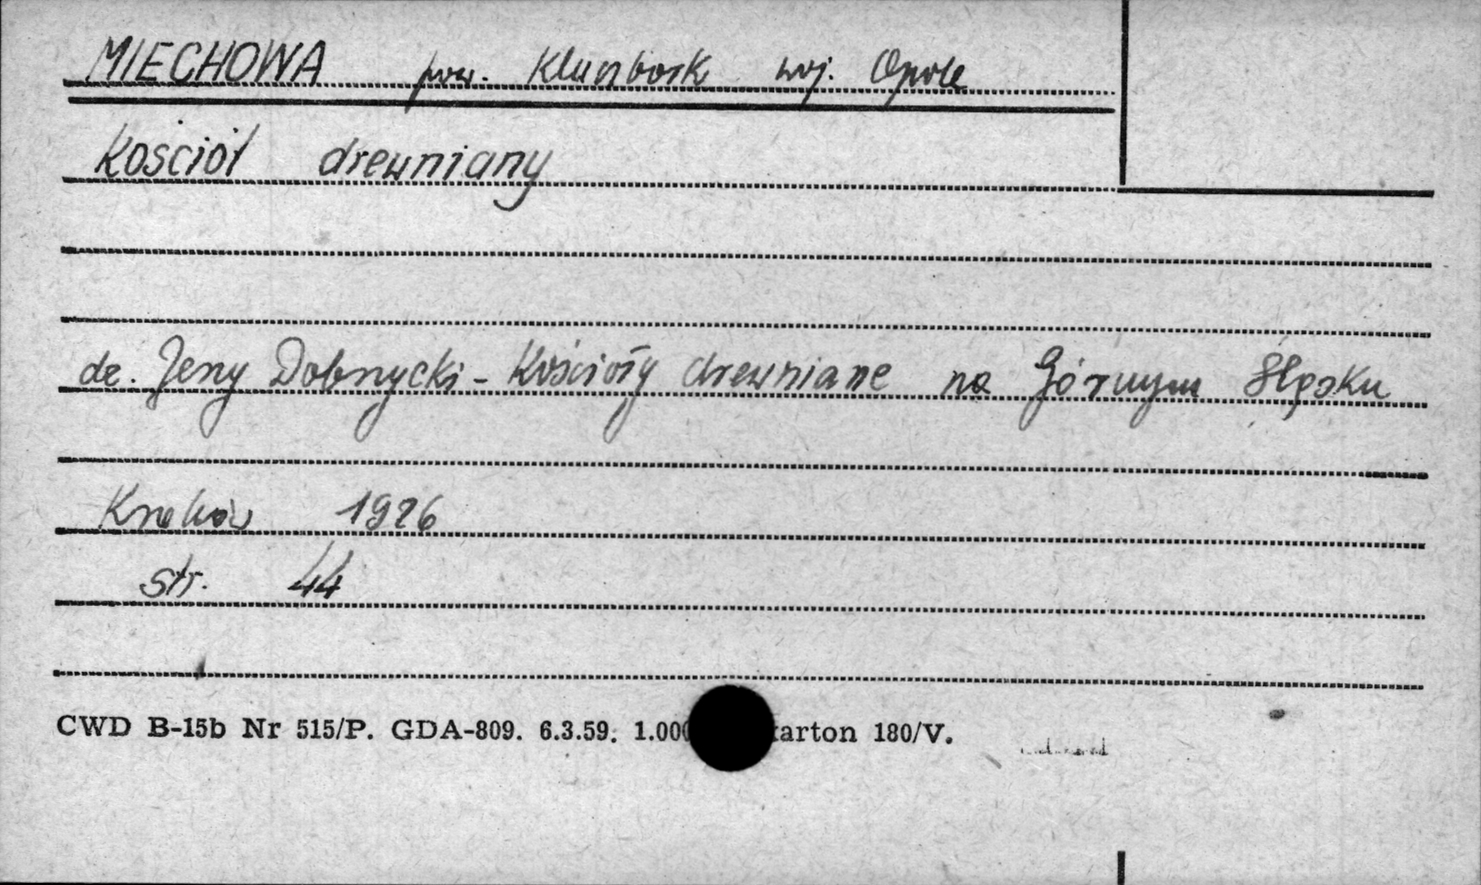 MIECHOWA pow. Kluczbork woj. Opole
Kościół drewniany
dr. Jerzy Dobrzycki - Kościoły drewniane na Górnym Śląsku
Kraków 1926
str. 44
CWD B-15b Nr 515/P. GDA-809. 6.3.59. 1.000 karton 180/V.